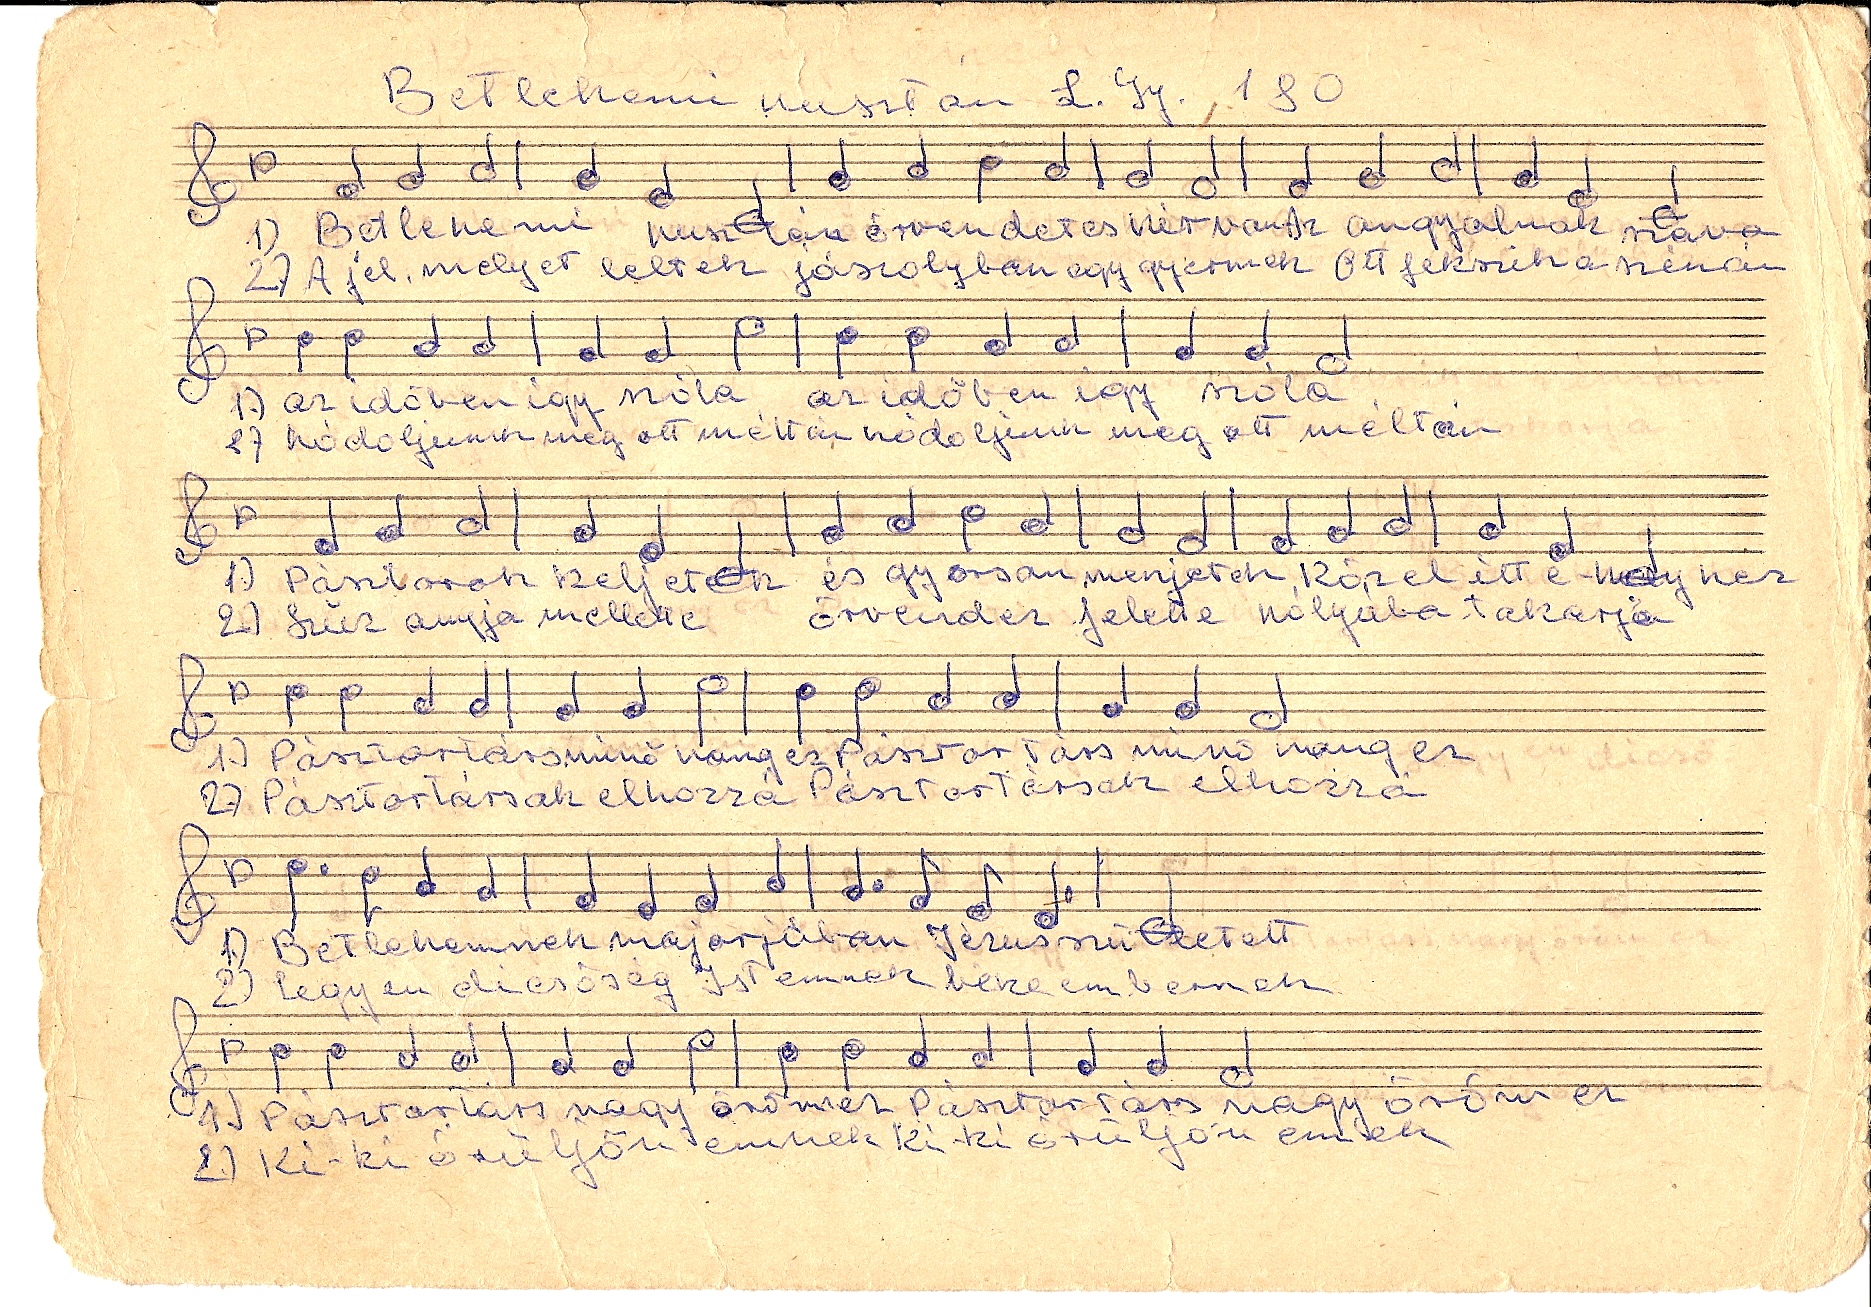 Betlehemi pusztán L. Gy. 190
1) Betlehemi pusztán örvendetes hír van Az angyalnak szava
2.) A jel, melyet leltek jászolyban egy gyermek Ott fekszik a szénán
1.) az időben így szóla az időben így szóla
2) hódoljunk meg ott méltán hódoljunk meg ott méltán
1.) Pásztorok keljetek és gyorsan menjetek Közel itt e helyhez
2.) Szűz anyja mellette örvendez felette pólyába takarja
1.) Pásztortárs minő hang ez Pásztortárs minő hang ez
2) Pásztortársak elhozzá Pásztortársak elhozzá
1) Betlehemnek majorjában Jézus született
2) Legyen dicsőség Istennek béke embernek
1.) Pásztortárs nagy öröm ez Pásztortárs nagy öröm ez
2.) Ki-ki örüljön ennek Ki-ki örüljön ennek